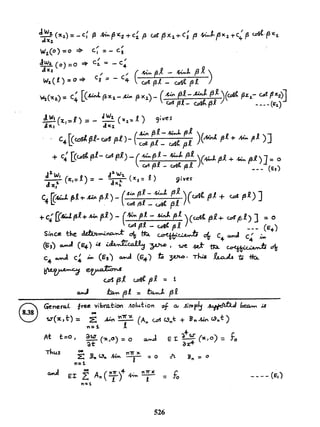 dW₂/dx₂ (x₂) = - C₁' β sin βx₂ + C₂' β cos βx₂ + C₃' β sinh βx₂ + C₄' β cosh βx₂
W₂(0) = 0 ⇒ C₁' = - C₃'
dW₂/dx₂ (0) = 0 ⇒ C₂' = - C₄'
W₂(l) = 0 ⇒ C₃' = - C₄' (sin βl - sinh βl / cos βl - cosh βl)
W₂(x₂) = C₄' [(sinh βx₂ - sin βx₂) - (sin βl - sinh βl / cos βl - cosh βl)(cosh βx₂ - cos βx₂)]
---- (E₂)
dW₁/dx₁ (x₁ = l) = - dW₂/dx₂ (x₂ = l) gives
C₄ [(cosh βl - cos βl) - (sin βl - sinh βl / cos βl - cosh βl)(sinh βl + sin βl)]
+ C₄' [(cosh βl - cos βl) - (sin βl - sinh βl / cos βl - cosh βl)(sinh βl + sin βl)] = 0
--- (E₃)
d²W₁/dx₁² (x₁ = l) = - d²W₂/dx₂² (x₂ = l) gives
C₄ [(sinh βl + sin βl) - (sin βl - sinh βl / cos βl - cosh βl)(cosh βl + cos βl)]
+ C₄' [(sinh βl + sin βl) - (sin βl - sinh βl / cos βl - cosh βl)(cosh βl + cos βl)] = 0
--- (E₄)
Since the determinant of the coefficients of C₄ and C₄' in
(E₃) and (E₄) is identically zero, we set the coefficients of
C₄ and C₄' in (E₃) and (E₄) to zero. This leads to the
frequency equations
cos βl cosh βl = 1
and tan βl = tanh βl
8.38 General free vibration solution of a simply supported beam is
w(x,t) = Σ n=1 ∞ sin nπx/l (Aₙ cos ωₙt + Bₙ sin ωₙt)
At t=0, ∂w/∂t (x,0) = 0 and EI ∂⁴w/∂x⁴ (x,0) = f₀
Thus Σ n=1 ∞ Bₙ ωₙ sin nπx/l = 0 ∴ Bₙ = 0
and EI Σ n=1 ∞ Aₙ (nπ/l)⁴ sin nπx/l = f₀ ---- (E₁)
526